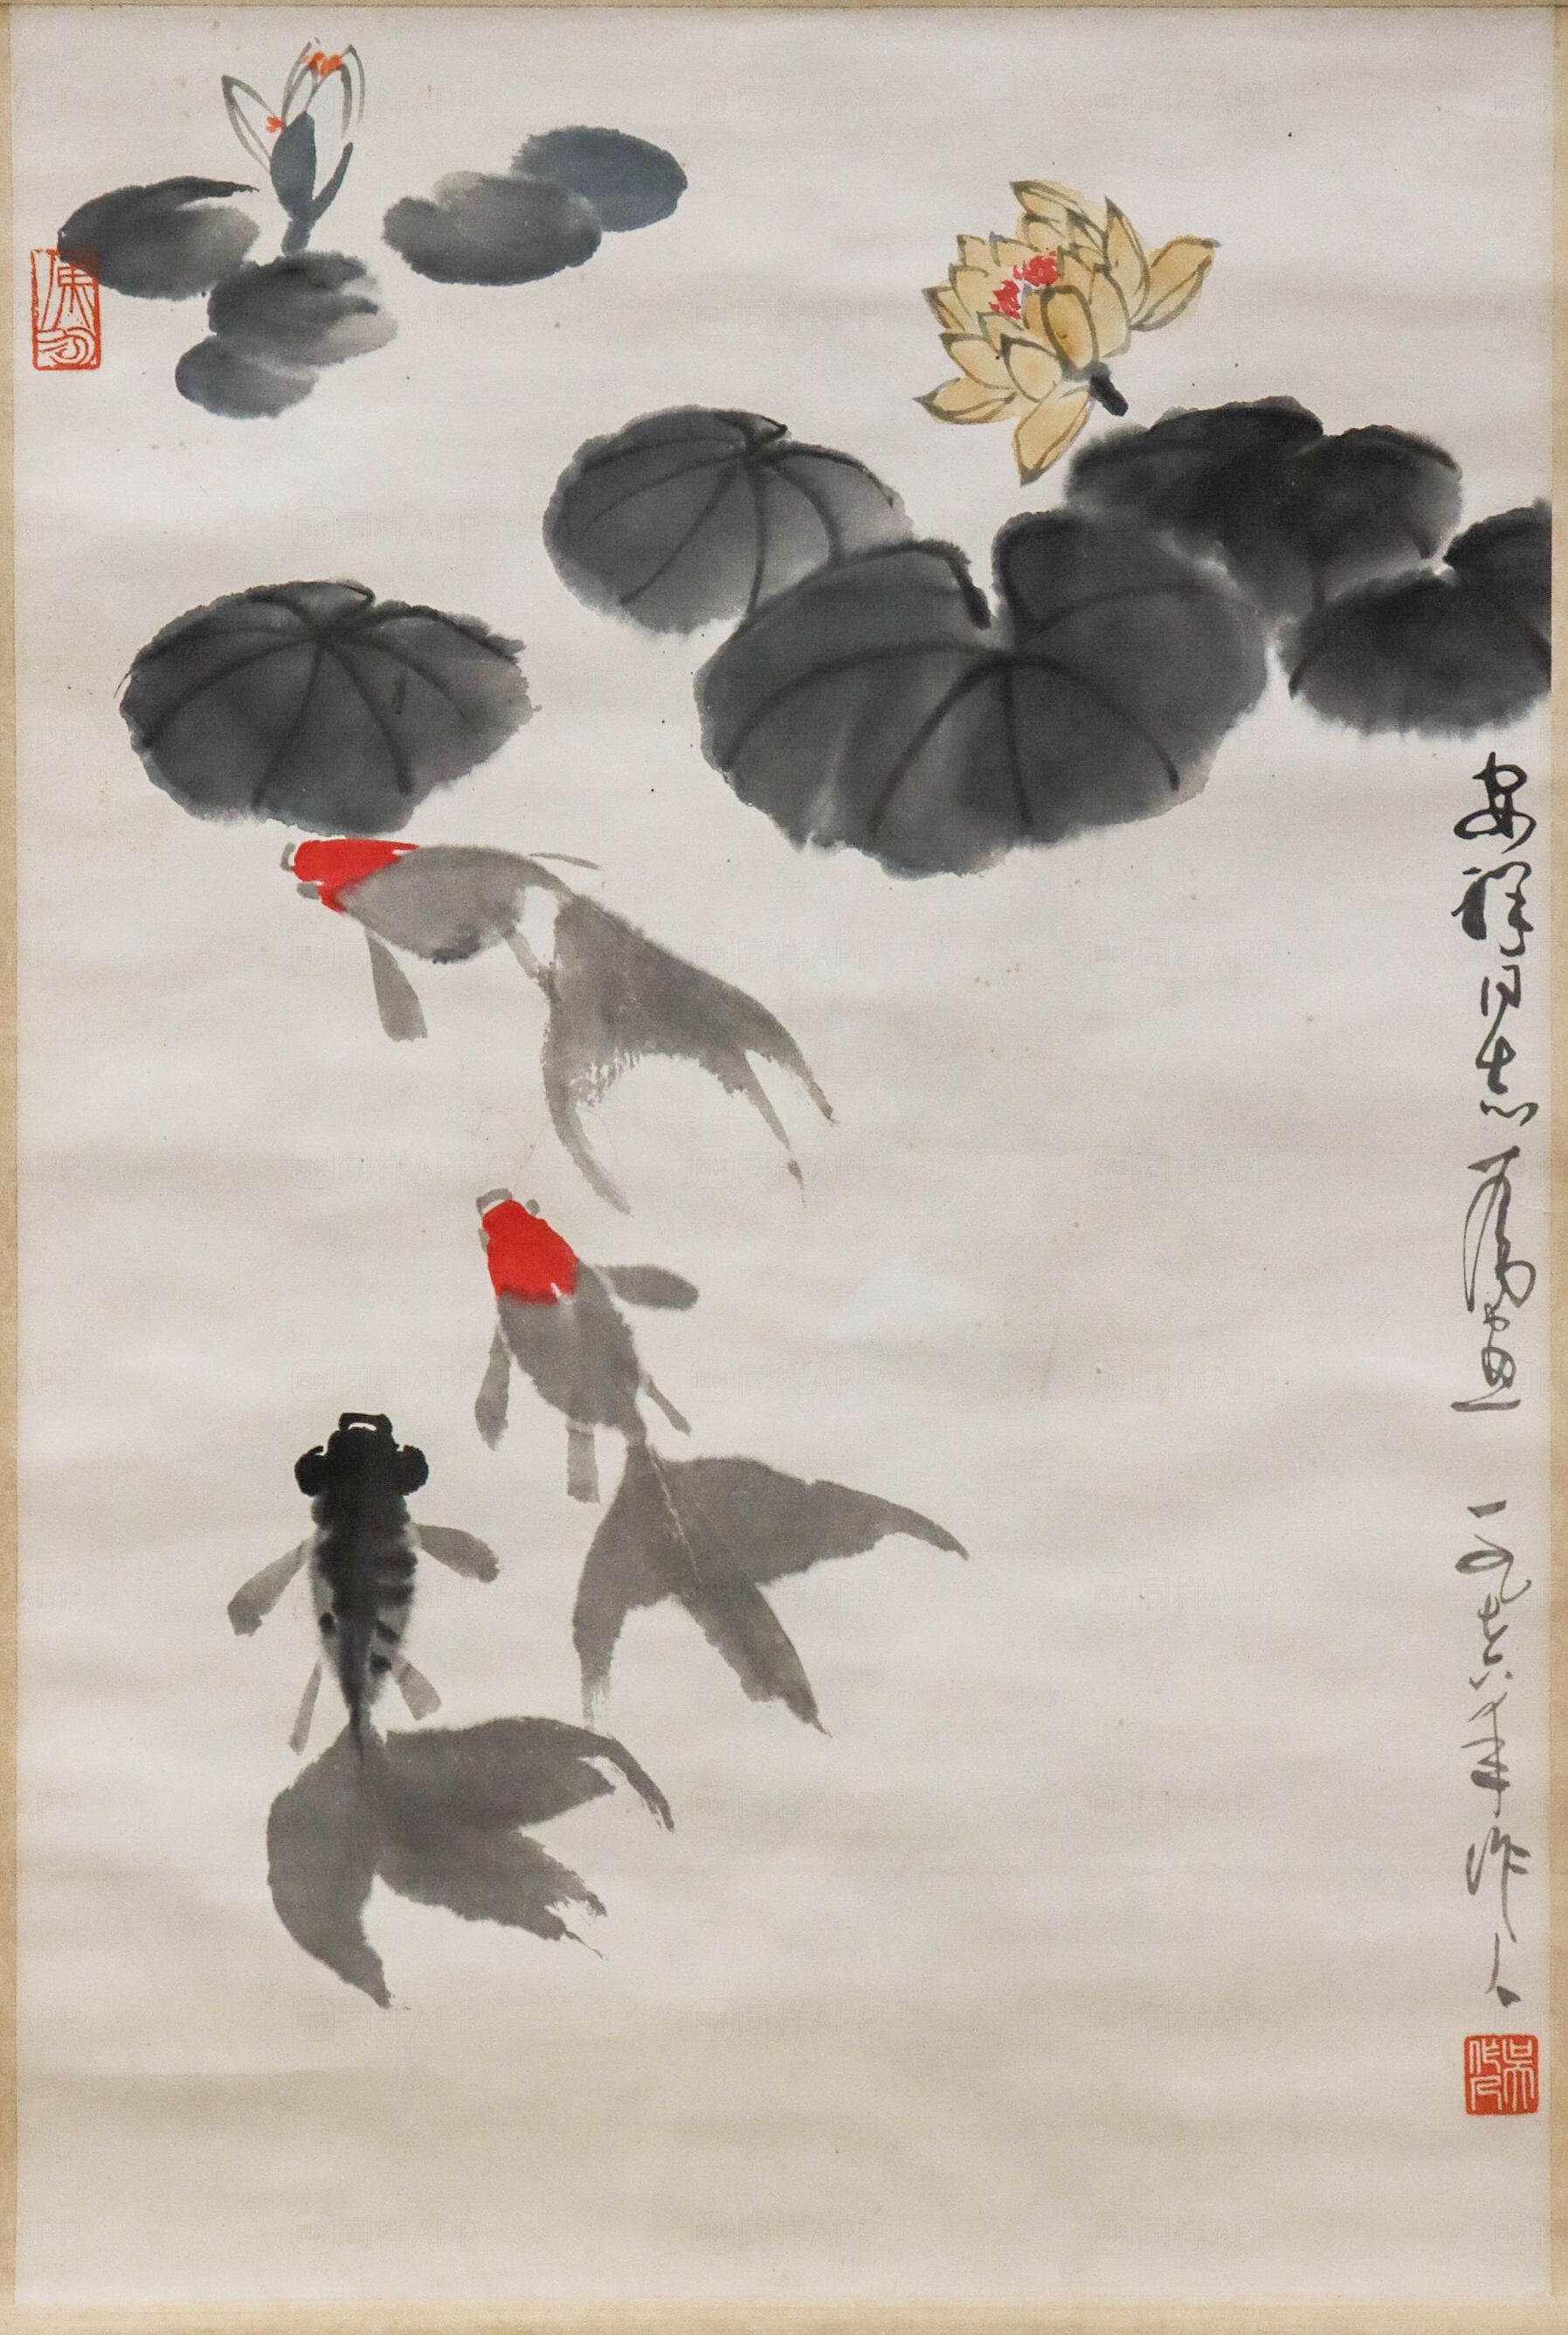 安祥同志属画 一九七六年 作人
吴作人